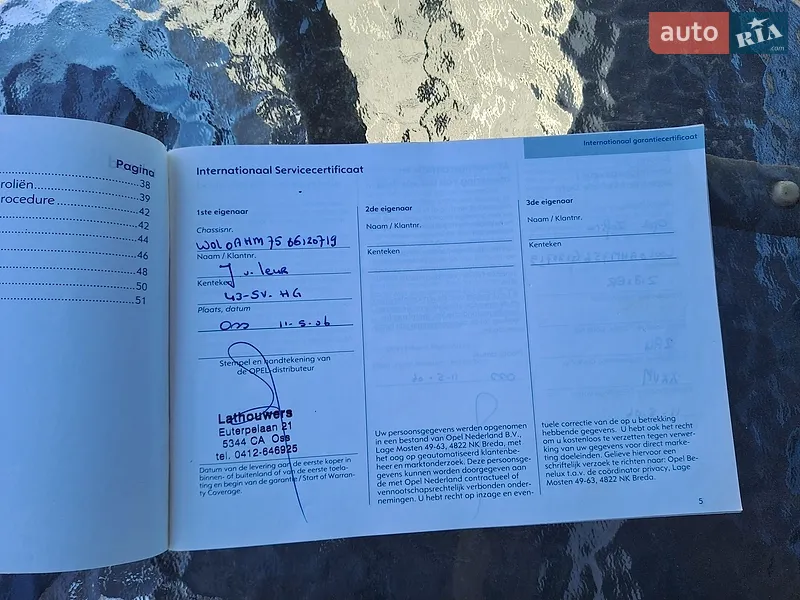 auto RIA .com
Pagina
38
roliën 39
rocedure 42
42
44
46
48
50
51
Internationaal garantiecertificaat
Internationaal Servicecertificaat
1ste eigenaar
Chassisnr.
WOL0AHM75 66120719
Naam / Klantnr.
J v.
Kenteken
43-SV-HG
Plaats, datum
Oss 11-5-06
Stempel en handtekening van
de OPEL-distributeur
Lathouwers
Euterpelaan 21
5344 CA Oss
tel. 0412-646925
Datum van de levering aan de eerste koper in
binnen- of buitenland of van de eerste toela-
ting en begin van de garantie / Start of Warran-
ty Coverage.
2de eigenaar
Naam / Klantnr.
Kenteken
Uw persoonsgegevens werden opgenomen
in een bestand van Opel Nederland B.V.,
Lage Mosten 49-63, 4822 NK Breda, met
het oog op geautomatiseerd klantenbe-
heer en marktonderzoek. Deze persoonsge-
gevens kunnen worden doorgegeven aan
de met Opel Nederland contractueel of
vennootschapsrechtelijk verbonden onder-
nemingen. U hebt recht op inzage en even-
3de eigenaar
Naam / Klantnr.
Kenteken
tuele correctie van de op u betrekking
hebbende gegevens. U hebt ook het recht
om u kosteloos te verzetten tegen verwer-
king van uw gegevens voor direct marke-
ting doeleinden. Gelieve hiervoor een
schriftelijk verzoek te richten naar: Opel Be-
nelux t.a.v. de coördinator privacy, Lage
Mosten 49-63, 4822 NK Breda.
5